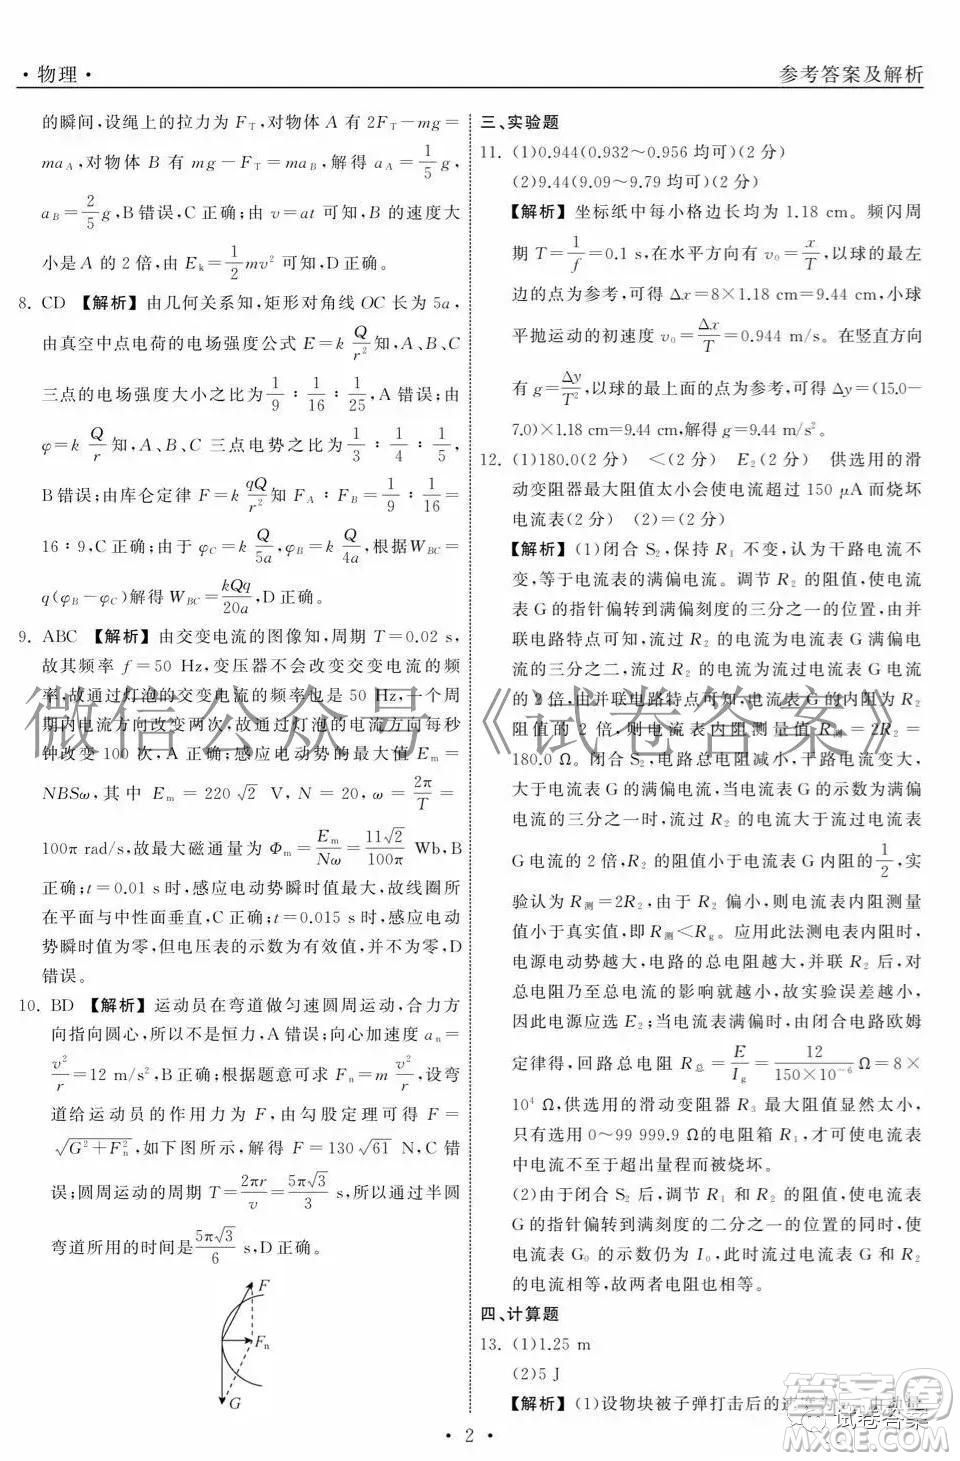 · 物理 ·
参考答案及解析
的瞬间,设绳上的拉力为 F_T,对物体 A 有 2F_T－mg＝
ma_A,对物体 B 有 mg－F_T＝ma_B,解得 a_A＝1/5 g,
a_B＝2/5 g,B错误,C正确;由 v＝at 可知,B 的速度大
小是 A 的 2 倍,由 E_k＝1/2 mv² 可知,D错误。
8. CD 【解析】由几何关系知,矩形对角线 OC 长为 5a,
由真空中点电荷的电场强度公式 E＝k Q/r² 知,A、B、C
三点的电场强度大小之比为 1/9 ∶ 1/16 ∶ 1/25,A错误;由
φ＝k Q/r 知,A、B、C 三点电势之比为 1/3 ∶ 1/4 ∶ 1/5,
B错误;由库仑定律 F＝k qQ/r² 知 F_A ∶ F_B＝1/9 ∶ 1/16＝
16∶9,C正确;由于 φ_C＝k Q/5a,φ_B＝k Q/4a,根据 W_BC＝
q(φ_B－φ_C)解得 W_BC＝kQq/20a,D正确。
9. ABC 【解析】由交变电流的图像知,周期 T＝0.02 s,
故其频率 f＝50 Hz,变压器不会改变交变电流的频
率,故通过灯泡的交变电流的频率也是 50 Hz,一个周
期内电流方向改变两次,故通过灯泡的电流方向每秒
钟改变 100 次,A正确;感应电动势的最大值 E_m＝
NBSω,其中 E_m＝220√2 V,N＝20,ω＝2π/T＝
100π rad/s,故最大磁通量为 Φ_m＝E_m/Nω＝11√2/100π Wb,B
正确;t＝0.01 s时,感应电动势瞬时值最大,故线圈所
在平面与中性面垂直,C正确;t＝0.015 s时,感应电动
势瞬时值为零,但电压表的示数为有效值,并不为零,D
错误。
10. BD 【解析】运动员在弯道做匀速圆周运动,合力方
向指向圆心,所以不是恒力,A错误;向心加速度 a_n＝
v²/r＝12 m/s²,B正确;根据题意可求 F_n＝m v²/r,设弯
道给运动员的作用力为 F,由勾股定理可得 F＝
√(G²＋F_n²),如下图所示,解得 F＝130√61 N,C错
误;圆周运动的周期 T＝2πr/v＝5π√3/3 s,所以通过半圆
弯道所用的时间是 5π√3/6 s,D正确。
F
F_n
G
三、实验题
11. (1)0.944(0.932～0.956均可)(2分)
(2)9.44(9.09～9.79均可)(2分)
【解析】坐标纸中每小格边长均为 1.18 cm。频闪周
期 T＝1/f＝0.1 s,在水平方向有 v₀＝x/T,以球的最左
边的点为参考,可得 Δx＝8×1.18 cm＝9.44 cm,小球
平抛运动的初速度 v₀＝Δx/T＝0.944 m/s。在竖直方向
有 g＝Δy/T²,以球的最上面的点为参考,可得 Δy＝(15.0-
7.0)×1.18 cm＝9.44 cm,解得 g＝9.44 m/s²。
12. (1)180.0(2分) <(2分) E₂(2分) 供选用的滑
动变阻器最大阻值太小会使电流超过 150 μA 而烧坏
电流表(2分) (2)＝(2分)
【解析】(1)闭合 S₂,保持 R₁ 不变,认为干路电流不
变,等于电流表的满偏电流。调节 R₂ 的阻值,使电流
表 G 的指针偏转到满偏刻度的三分之一的位置,由并
联电路特点可知,流过 R₂ 的电流为电流表 G 满偏电
流的三分之二,流过 R₂ 的电流为流过电流表 G 电流
的 2 倍,由并联电路特点可知,电流表 G 的内阻为 R₂
阻值的 2 倍,则电流表内阻测量值 R_测＝2R₂＝
180.0 Ω。闭合 S₂,电路总电阻减小,干路电流变大,
大于电流表 G 的满偏电流,当电流表 G 的示数为满偏
电流的三分之一时,流过 R₂ 的电流大于流过电流表
G 电流的 2 倍,R₂ 的阻值小于电流表 G 内阻的 1/2,实
验认为 R_测＝2R₂,由于 R₂ 偏小,则电流表内阻测量
值小于真实值,即 R_测＜R_g。应用此法测电表内阻时,
电源电动势越大,电路的总电阻越大,并联 R₂ 后,对
总电阻进而总电流的影响越小,故实验误差越小,
因此电源应选 E₂;当电流表满偏时,由闭合电路欧姆
定律得,回路总电阻 R_总＝E/I_g＝12/150×10⁻⁶ Ω＝8×
10⁴ Ω,供选用的滑动变阻器 R₃ 最大阻值显然太小,
只有选用 0～99 999.9 Ω的电阻箱 R₁,才可使电路中
电流不至于超出量程而被烧坏。
(2)由于闭合 S₂ 后,调节 R₁ 和 R₂ 的阻值,使电流表
G 的指针偏转到满刻度的二分之一的位置的同时,使
电流表 G₀ 的示数仍为 I₀,此时流过电流表 G 和 R₂
的电流相等,故两者电阻也相等。
四、计算题
13. (1)1.25 m
(2)5 J
【解析】(1)设物块被子弹打击后的速度为
· 2 ·
微信公众号《试卷答案》
试卷答案
答案圈
MXQE.COM